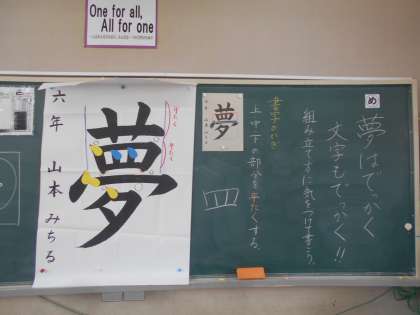 One for all,
All for one
め
夢はでっかく
文字もでっかく!!
組み立て方に気をつけて書こう。
書写のかぎ
上中下の部分を平たくする。
罒
夢
夢
六年 山本みちる